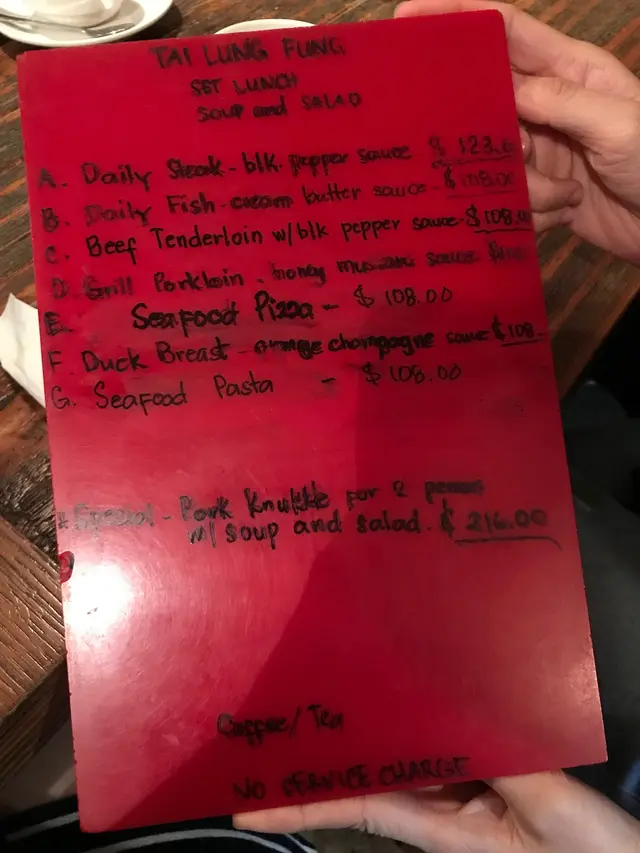 TAI LUNG FUNG
SET LUNCH
SOUP and SALAD
A. Daily Steak - blk. pepper sauce $ 123.0
B. Daily Fish - cream butter sauce - $ 108.00
C. Beef Tenderloin w/blk pepper sauce - $108.00
D. Grill Porkloin - honey sauce
E. Seafood Pizza - $ 108.00
F. Duck Breast - orange champagne sauce $108.
G. Seafood Pasta - $ 108.00
Special - Pork Knukkle for 2
w/ soup and salad. $ 216.00
Coffee / Tea
NO SERVICE CHARGE